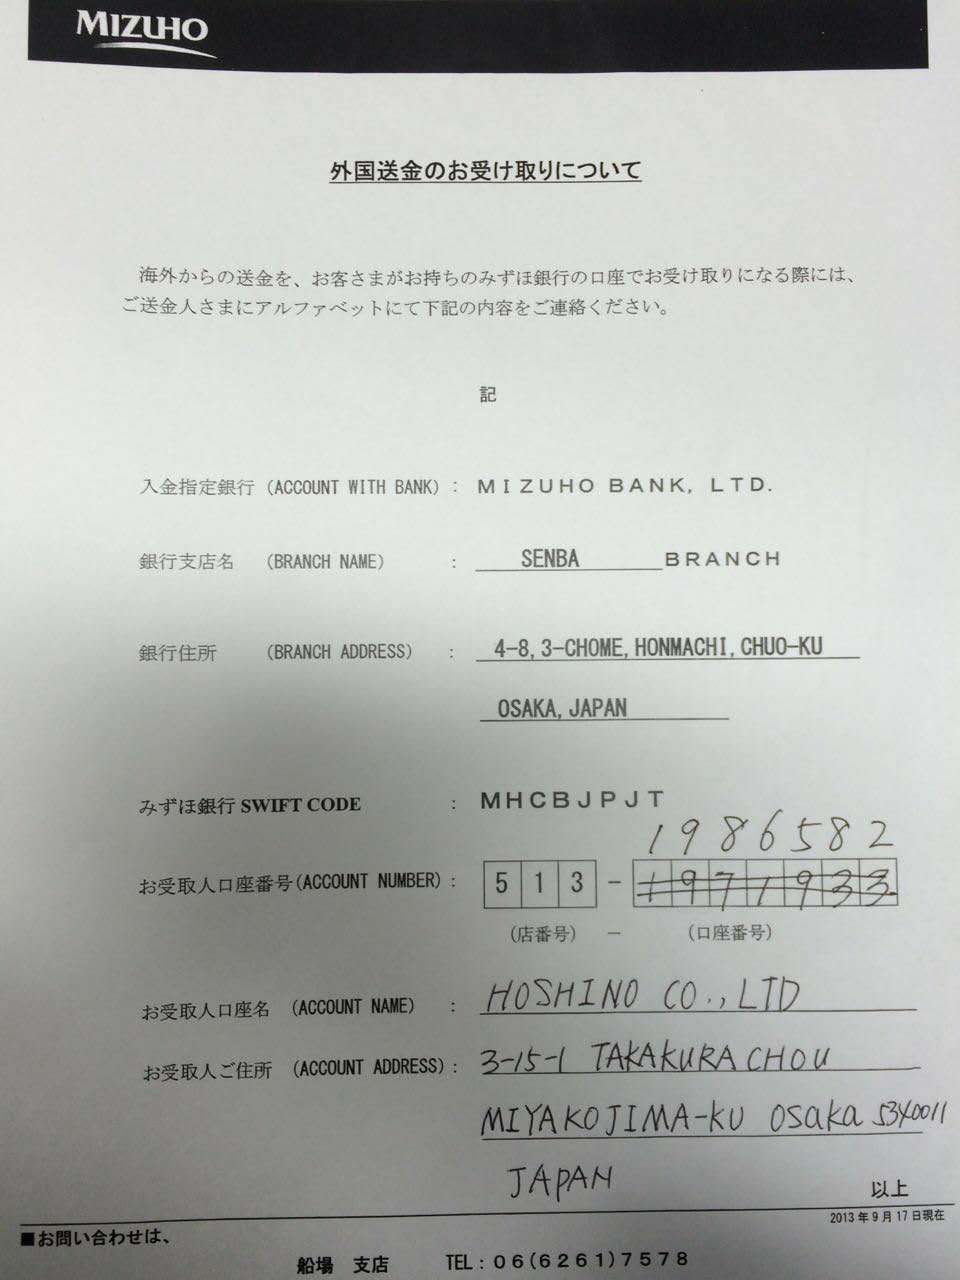 MIZUHO
外国送金のお受け取りについて
海外からの送金を、お客さまがお持ちのみずほ銀行の口座でお受け取りになる際には、
ご送金人さまにアルファベットにて下記の内容をご連絡ください。
記
入金指定銀行 (ACCOUNT WITH BANK) : MIZUHO BANK, LTD.
銀行支店名 (BRANCH NAME) : SENBA BRANCH
銀行住所 (BRANCH ADDRESS) : 4-8, 3-CHOME, HONMACHI, CHUO-KU
OSAKA, JAPAN
みずほ銀行 SWIFT CODE : MHCBJPJT
1986582
お受取人口座番号 (ACCOUNT NUMBER) : 513 - 1971933
(店番号) - (口座番号)
お受取人口座名 (ACCOUNT NAME) : HOSHINO CO., LTD
お受取人ご住所 (ACCOUNT ADDRESS) : 3-15-1 TAKAKURA CHOU
MIYAKOJIMA-KU OSAKA 5340011
JAPAN
以上
2013年9月17日現在
■お問い合わせは、
船場 支店 TEL : 06(6261)7578